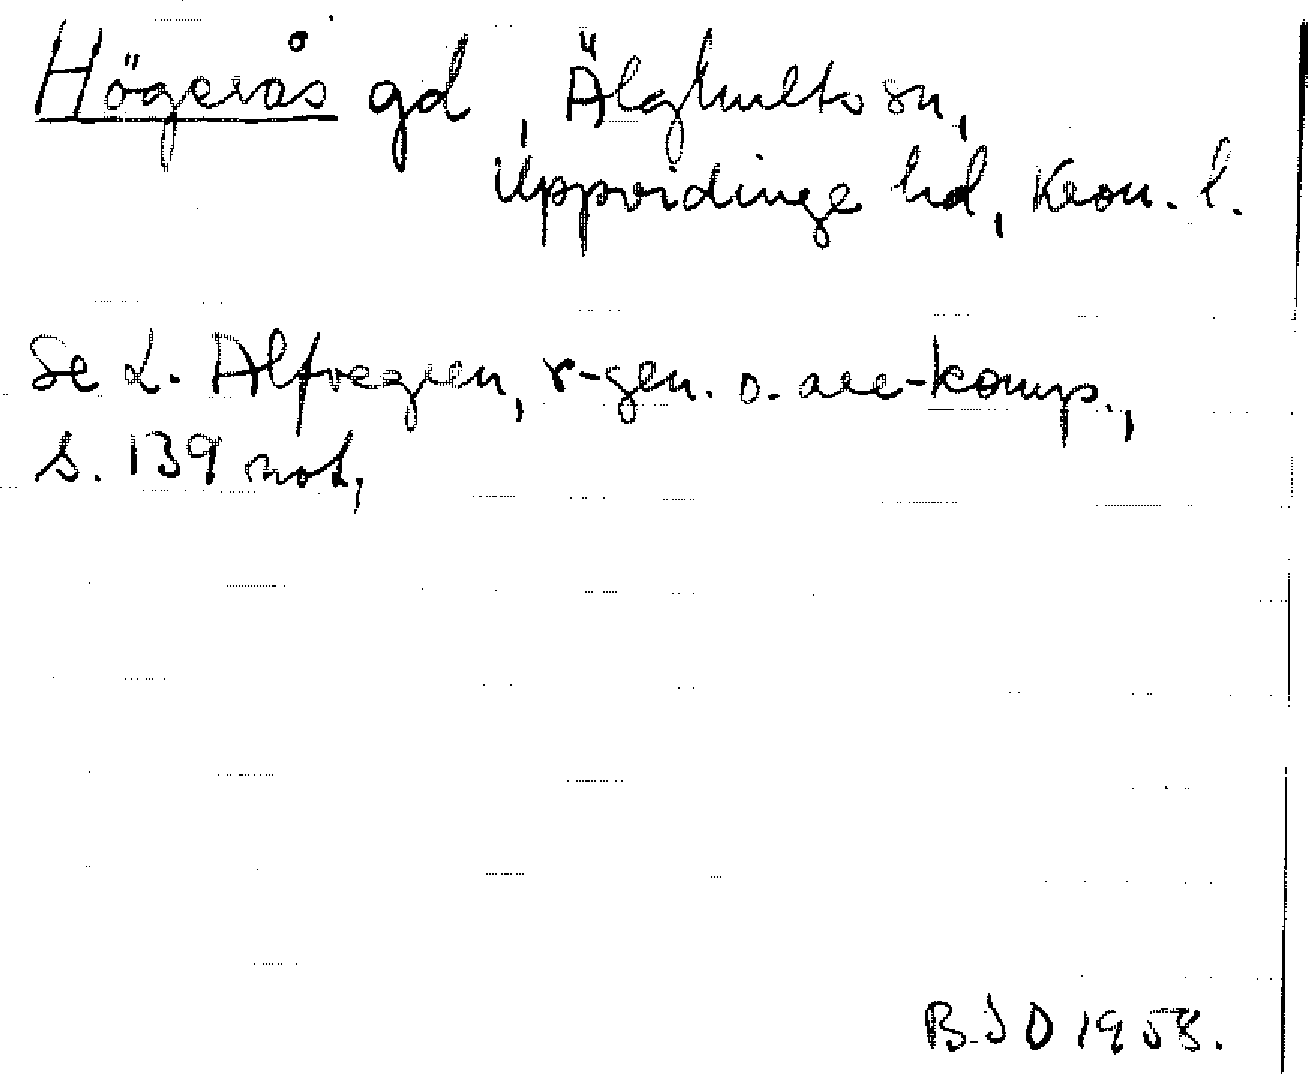 Högerås gd, Älghults sn,
Uppvidinge hd, Kron. l.
Se L. Alfvegren, r-gen. o. are-komp.,
s. 139 not,
B.J D 1958.